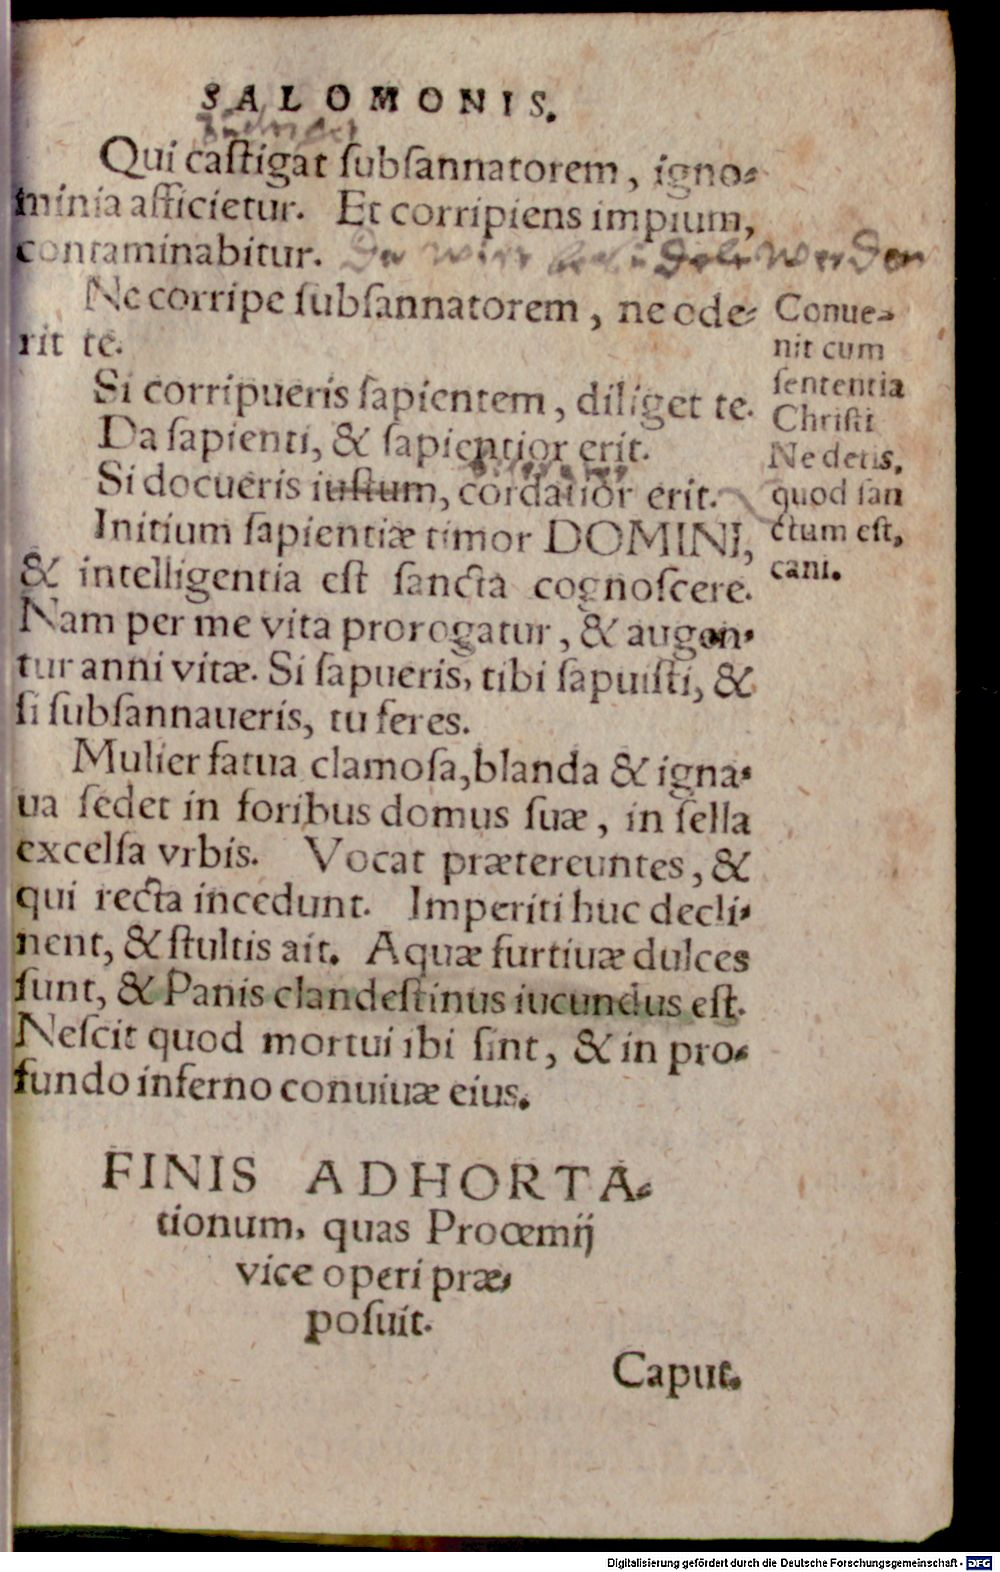 SALOMONIS.
Qui castigat subsannatorem, igno-
minia afficietur. Et corripiens impium,
contaminabitur.
werden
Ne corripe subsannatorem, ne ode-
rit te.
Si corripueris sapientem, diliget te.
Da sapienti, & sapientior erit.
Si docueris iustum, cordatior erit.
Initium sapientiæ timor DOMINI,
& intelligentia est sancta cognoscere.
Nam per me vita prorogatur, & augen-
tur anni vitæ. Si sapueris, tibi sapuisti, &
si subsannaueris, tu feres.
Mulier fatua clamosa, blanda & igna-
ua sedet in foribus domus suæ, in sella
excelsa vrbis. Vocat prætereuntes, &
qui recta incedunt. Imperiti huc decli-
nent, & stultis ait. Aquæ furtiuæ dulces
sunt, & Panis clandestinus iucundus est.
Nescit quod mortui ibi sint, & in pro-
fundo inferno conuiuæ eius.
Conue-
nit cum
sententia
Christi
Ne detis,
quod san
ctum est,
cani.
FINIS ADHORTA-
tionum, quas Proœmij
vice operi præ-
posuit.
Caput.
Digitalisierung gefördert durch die Deutsche Forschungsgemeinschaft - DFG